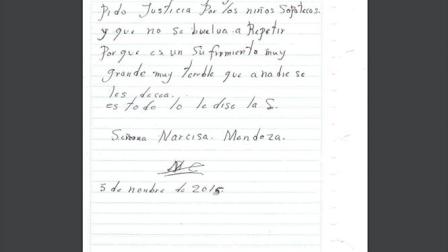 Pido Justicia Por los niños Sapotecos.
y que no se buelva a Repetir
Porque es un Sufrimiento muy
grande muy terrible que a nadie se
les desea.
es todo lo le dise la S.
Señora Narcisa. Mendoza.
5 de nombre de 2015